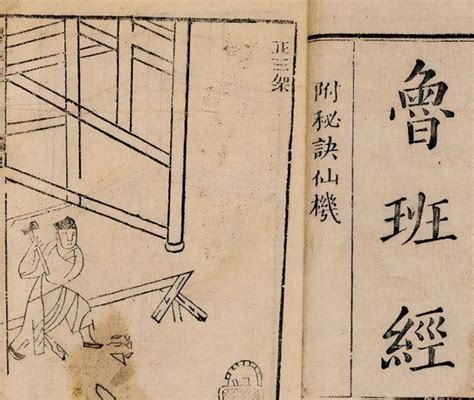 魯班經
附秘訣仙機
正三架